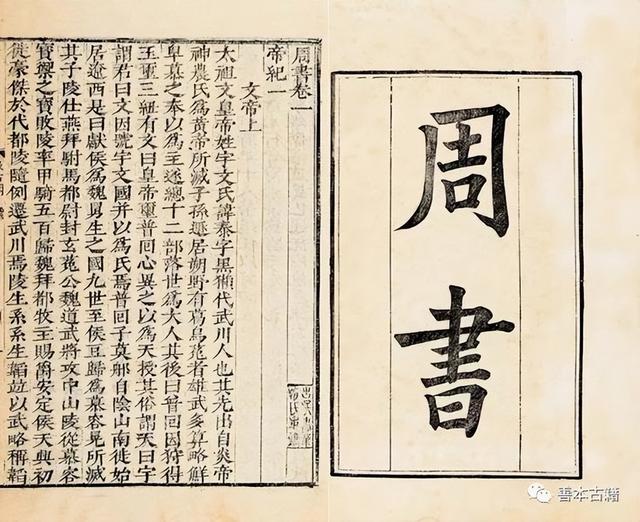 周書
周書卷一
帝紀一
文帝上
太祖文皇帝姓宇文氏諱泰字黑獺代武川人也其先出自炎帝
神農氏爲黃帝所滅子孫遯居朔野有葛烏菟者雄武多算略鮮
卑慕之奉以爲主遂總十二部落世爲大人其後曰普回因狩得
玉璽三紐有文曰皇帝璽普回心異之以爲天授其俗謂天曰宇
謂君曰文因號宇文國并以爲氏焉普回子莫那自陰山南徙始
居遼西是曰獻侯爲魏舅生之國九世至侯豆歸爲慕容晃所滅
其子陵仕燕拜駙馬都尉封玄菟公魏道武將攻中山陵從慕容
寶禦之寶敗陵率甲騎五百歸魏拜都牧主賜爵安定侯天興初
徙豪傑於代都陵隨例遷武川焉陵生系系生韜並以武略稱韜
善本古籍